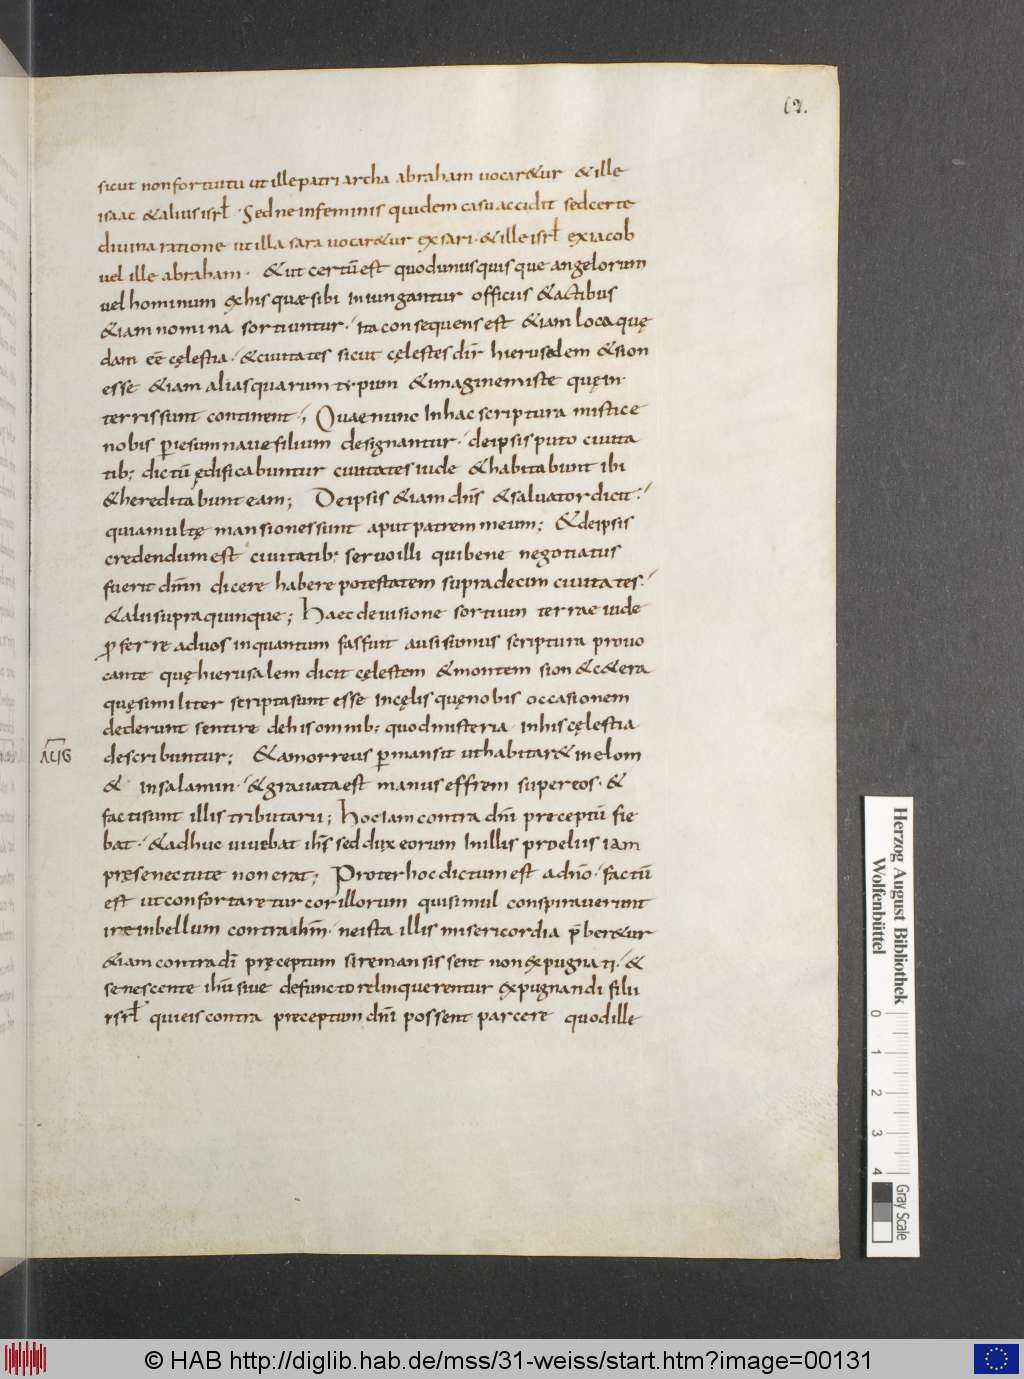 62.
sicut non fortuitu ut ille patriarcha abraham uocar&ur &ille
isaac &alius isrł · Sed ne in feminis quidem casu accidit sed certe
diuina ratione ut illa sara uocar&ur ex sari · &ille isrł ex iacob
uel ille abraham · &ut certū est quod unusquisque angelorum
uel hominum ex his quae sibi iniungantur officiis &actibus
&iam nomina sortiuntur · ita consequens est &iam loca quę
dam eē cęlestia · &ciuitates sicut cęlestes dir̄ hierusalem &sion
esse &iam alias quarum typum &imaginem istę quę in
terris sunt continent ·, Quae nunc In hac scriptura mistice
nobis ꝑ iesum naue filium designantur · de ipsis puto ciuita
tib: dictū ędificabuntur ciuitates iudę &habitabunt ibi
&hereditabunt eam; De ipsis &iam dn̄s &saluator dicit ·
quia multę mansiones sunt aput patrem meum; &de ipsis
credendum est ciuitatib: seruo illi qui bene negotiatus
fuerit dn̄m dicere habere potestatem supra decem ciuitates ·
&alii supra quinque; Haec deuisione sortium terrae iudę
proferre ad uos in quantum fas fuit ausi sumus scriptura prouo
cante quę hierusalem dicit cęlestem &montem sion &c&era
quę similiter scripta sunt esse in cęlis quę nobis occasionem
dederunt sentire de his omnib: quod misteria in his cęlestia
ΛUG describuntur; &amorreus ꝑmansit ut habitar& in elom
& in salamin · &grauata est manus effrem super eos · &
facti sunt illis tributarii; Hoc iam contra dn̄i preceptū fie
bat · &adhuc uiuebat ih̄s sed dux eorum In illis proeliis iam
prę senectute non erat; Proter hoc dictum est a dn̄o · factū
est ut confortaretur cor illorum qui simul conspirauerunt
ire in bellum contra ih̄m · ne ista illis misericordia p̄ber&ur
&iam contra dī pręceptum si remansissent non expugnati · &
senescente ih̄u siue defuncto relinquerentur expugnandi filii
isrł qui eis contra preceptum dn̄i possent parcere quod ille
Herzog August Bibliothek
Wolfenbüttel
0 1 2 3 4
Gray Scale
© HAB http://diglib.hab.de/mss/31-weiss/start.htm?image=00131